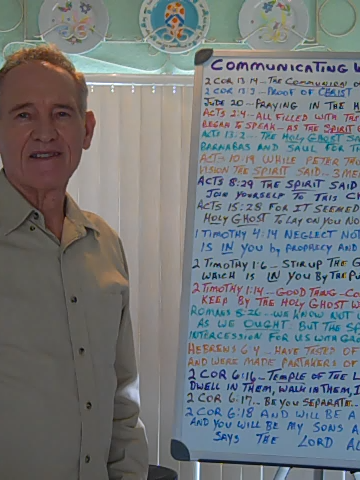 COMMUNICATING W
2 COR 13:14 -- THE COMMUNION O
2 COR 13:3 -- PROOF OF CHRIST
JUDE 20 -- PRAYING IN THE H
ACTS 2:4 -- ALL FILLED WITH THE
BEGAN TO SPEAK -- AS THE SPIRIT
ACTS 13:2 -- THE HOLY GHOST SA
BARNABAS AND SAUL FOR TH
ACTS 10:19 WHILE PETER THO
VISION THE SPIRIT SAID... 3 MEN
ACTS 8:29 THE SPIRIT SAID
JOIN YOURSELF TO THIS CH
ACTS 15:28 FOR IT SEEMED
HOLY GHOST TO LAY ON YOU NO
1 TIMOTHY 4:14 NEGLECT NOT
IS IN YOU by PROPHECY AND
2 TIMOTHY 1:6 -- STIR UP THE G
WHICH IS IN YOU BY THE PU
2 TIMOTHY 1:14 -- GOOD THING -- CO
KEEP BY THE HOLY GHOST W
ROMANS 8:26 -- WE KNOW NOT W
AS WE OUGHT. BUT THE SP
INTERCESSION FOR US WITH GRO
HEBREWS 6:4 -- HAVE TASTED OF
AND WERE MADE PARTAKERS OF
2 COR 6:16 -- TEMPLE OF THE L
DWELL IN THEM, WALK IN THEM, I
2 COR 6:17 -- BE YOU SEPARATE...
2 COR 6:18 AND WILL BE A
AND YOU WILL BE MY SONS A
SAYS THE LORD AL